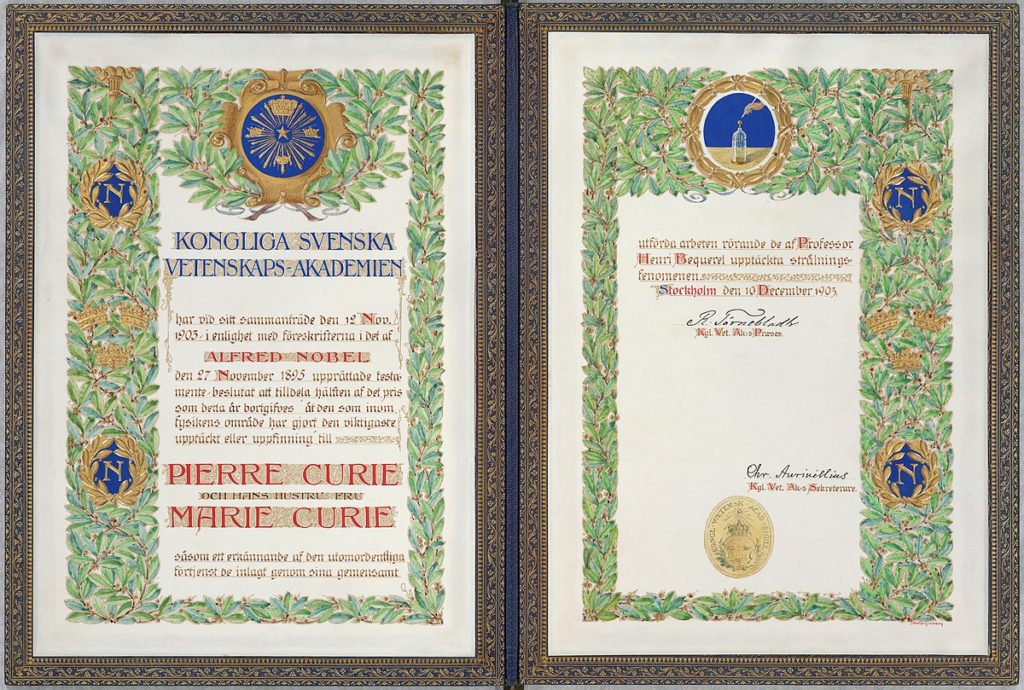 N
N
KONGLIGA SVENSKA
VETENSKAPS-AKADEMIEN
har vid sitt sammanträde den 12 Nov.
1903 i enlighet med föreskrifterna i det af
ALFRED NOBEL
den 27 November 1895 upprättade testa-
mente beslutat att tilldela hälften af det pris
som detta år bortgifves åt den som inom
fysikens område har gjort den viktigaste
upptäckt eller uppfinning till
PIERRE CURIE
OCH HANS HUSTRU FRU
MARIE CURIE
såsom ett erkännande af den utomordentliga
förtjenst de inlagt genom sina gemensamt
N
N
utförda arbeten rörande de af Professor
Henri Bequerel upptäckta strålnings-
fenomenen
Stockholm den 10 December 1903
R. Törnebladh
Kgl. Vet. Ak:s Præses.
Chr. Aurivillius
Kgl. Vet. Ak:s Sekreterare.